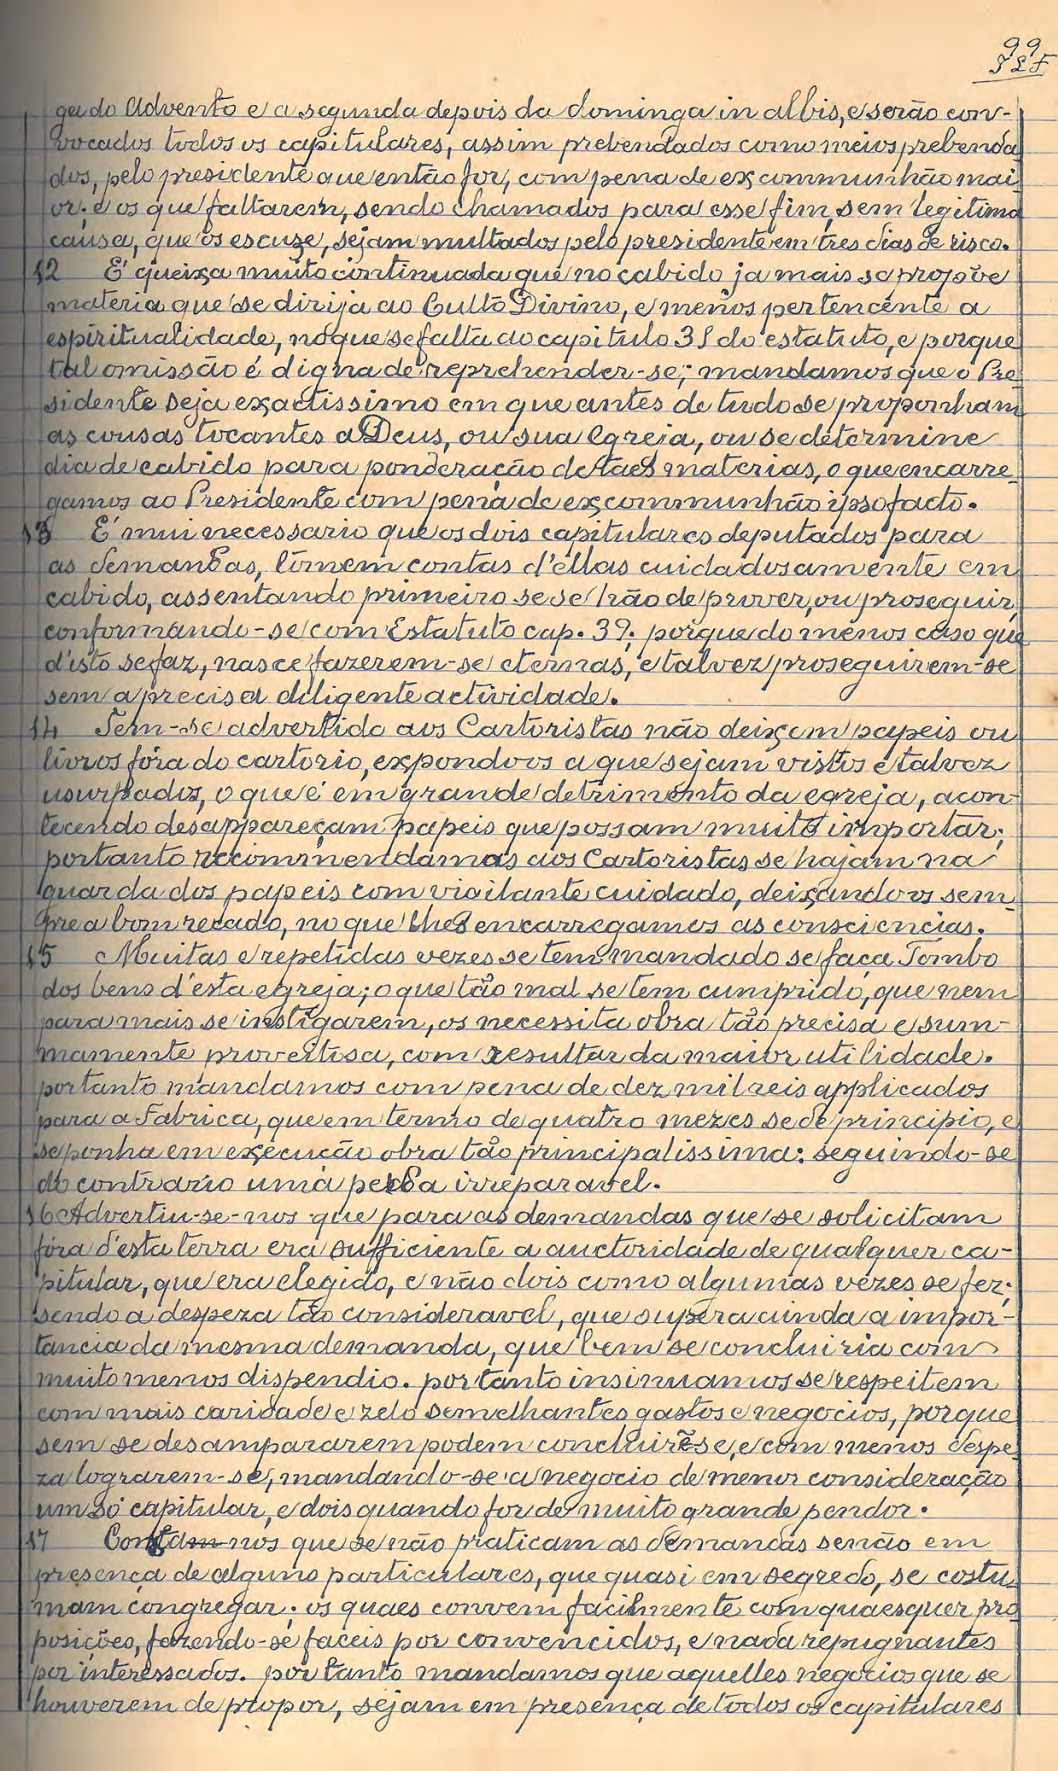 99
ga do Advento e a segunda depois da dominga in albis, e serão con-
vocados todos os capitulares, assim prebendados como meios prebenda
dos, pelo presidente que então for, com pena de excommunhão mai
or: e os que faltarem, sendo chamados para esse fim, sem legitima
causa, que os escuze, sejam multados pelo presidente em tres dias de risco.
12 E' queixa muito continuada que no cabido ja mais se propõe
materia que se dirija ao Culto Divino, e menos pertencente a
espiritualidade, no que se falta ao capitulo 31 do estatuto, e porque
tal omissão é digna de reprehender-se; mandamos que o Pre-
sidente seja exactissimo em que antes de tudo se proponham
as cousas tocantes a Deus, ou sua Egreja, ou se determine
dia de cabido para ponderação de taes materias, o que encarre-
gamos ao Presidente com pena de excommunhão ipso facto.
13 É mui necessario que os dois capitulares deputados para
as demandas, tomem contas d'ellas cuidadosamente em
cabido, assentando primeiro se se hão de prover, ou proseguir,
conformando-se com Estatuto cap. 39; porque do menos caso que
d'isto se faz, nasce fazerem-se eternas, e talvez proseguirem-se
sem a precisa diligente actividade.
14 Tem-se advertido aos Cartoristas não deixem papeis ou
livros fóra do cartorio, expondo os a que sejam vistos e talvez
usurpados, o que é em grande detrimento da egreja, acon-
tecendo desappareçam papeis que possam muito importar;
portanto recommendamos aos Cartoristas se hajam na
guarda dos papeis com vigilante cuidado, deixando os sem-
pre a bom recado, no que lhes encarregamos as consciencias.
15 Muitas e repetidas vezes se tem mandado se faça Tombo
dos bens d'esta egreja; o que tão mal se tem cumprido, que nem
para mais se instigarem, os necessita obra tão precisa e sum-
mamente proveitosa, com resultar da maior utilidade.
portanto mandamos com pena de dez mil reis applicados
para a Fabrica, que em termo de quatro mezes se dê principio, e
se ponha em execução obra tão principalissima: seguindo-se
do contrario uma perda irreparavel.
16 Advertiu-se-nos que para as demandas que se solicitam
fóra d'esta terra era sufficiente a auctoridade de qualquer ca-
pitular, que era elegido, e não dois como algumas vezes se fez;
sendo a despeza tão consideravel, que supera ainda a impor-
tancia da mesma demanda, que bem se concluiria com
muito menos dispendio. portanto insinuamos se respeitem
com mais caridade e zelo semelhantes gastos e negocios, porque
sem se desampararem podem concluirẽ-se, e com menos despe
za lograrem-se, mandando-se a negocio de menor consideração
um só capitular, e dois quando for de muito grande pendor.
17 Constam-nos que se não praticam as demandas senão em
presença de alguns particulares, que quasi em segredo, se costu-
mam congregar; os quaes convem facilmente com quaesquer pro
posições, fazendo-se faceis por convencidos, e nada repugnantes
por interessados. por tanto mandamos que aquelles negocios que se
houverem de propor, sejam em presença de todos os capitulares